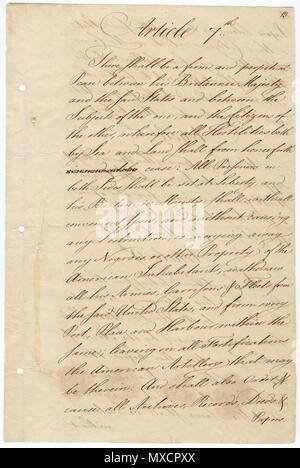 Article 7th
There shall be a firm and perpetual
Peace between his Britannic Majesty
and the said States and between the
Subjects of the one, and the Citizens of
the other, wherefore all Hostilities both
by Sea and Land shall from henceforth
cease: All Prisoners on
both Sides shall be set at Liberty, and
his Britannic Majesty shall with all
convenient speed, and without causing
any Destruction, or carrying away
any Negroes or other Property of the
American Inhabitants, withdraw
all his Armies, Garrisons & Fleets from
the said United States, and from every
Port, Place and Harbour within the
same; leaving in all Fortifications
the American Artillery that may
be therein: And shall also Order &
cause all Archives, Records, Deeds &
Papers
alamy
Image ID: MXCPXX
www.alamy.com